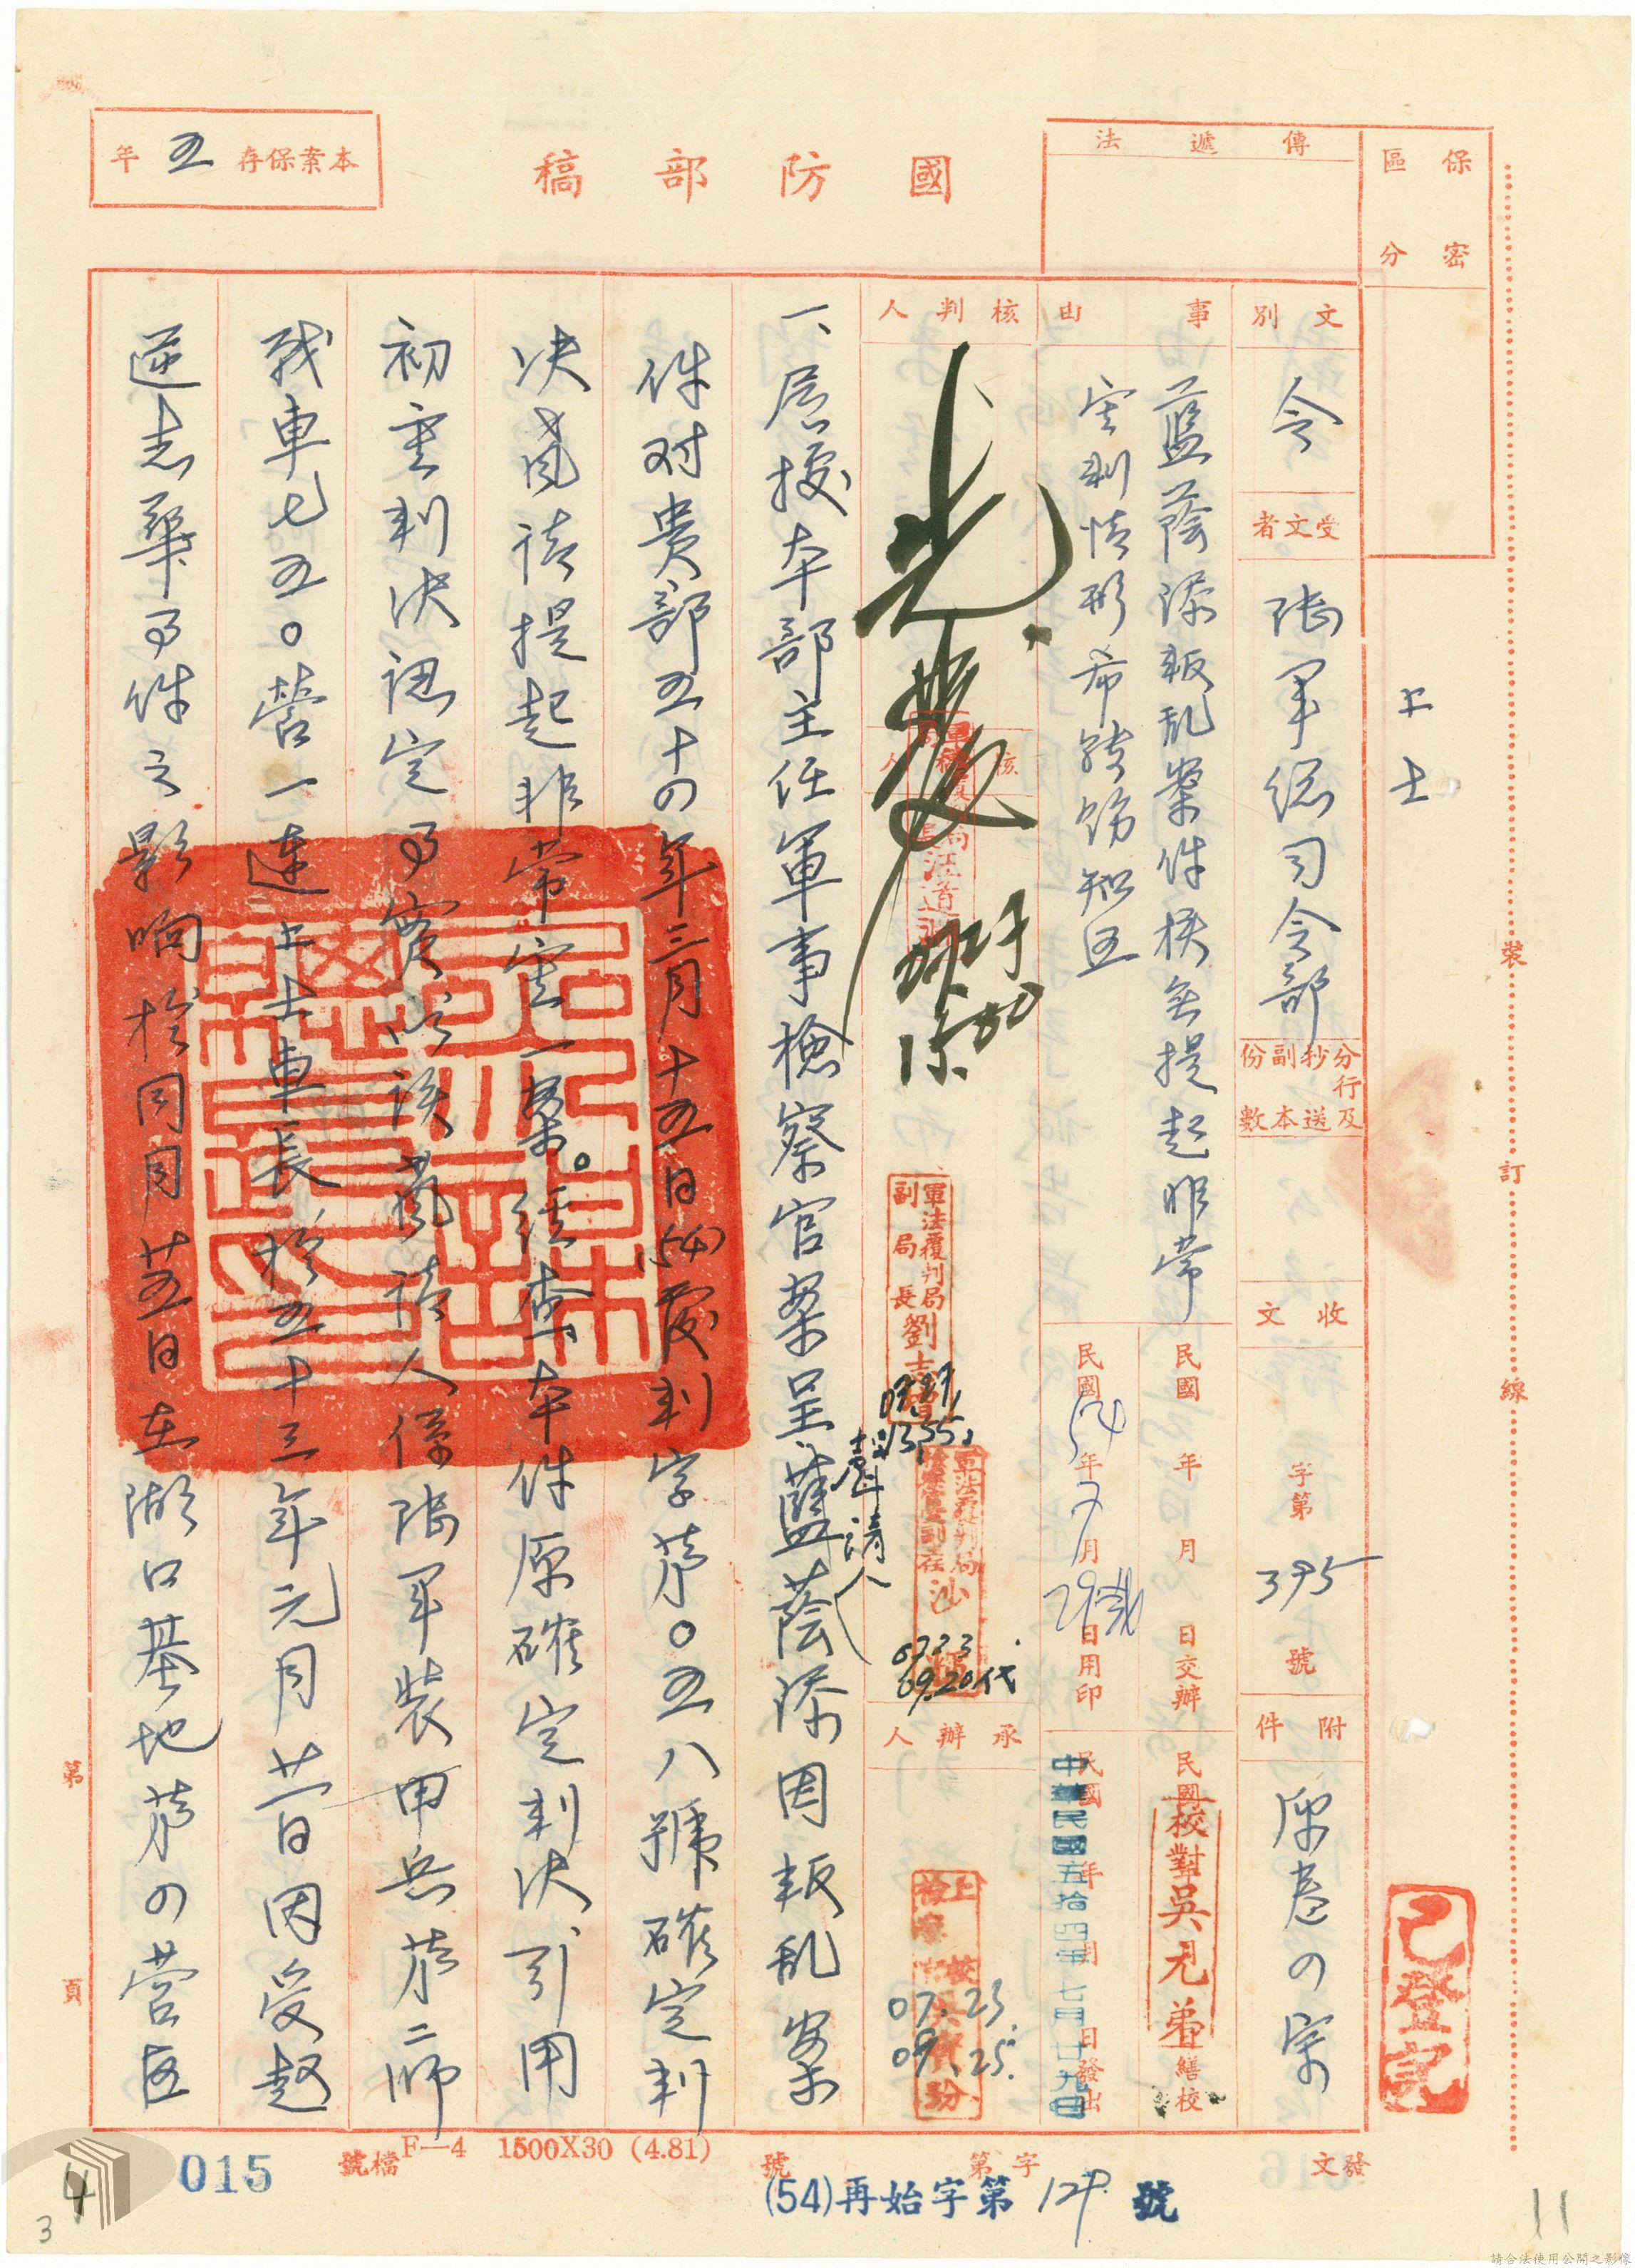 國防部稿
本案保存五年
保密
區分
傳遞法
文別
令
受文者
陸軍總司令部
分行及
抄送
副本
份數
收文
字第395號
附件
原卷四宗
事由
藍蔭添叛乱案件核無提起非常
審判情形希轉飭知照
民國 年 月 日交辦
民國54年7月29日用印
民國 年 月 日發出
中華民國五拾四年七月廿九日
校對吳元
繕校
核判人
核稿人
承辦人
軍法覆判局
副局長劉
07.23
09.20代
07.23.
09.25.
聲請人
一、層據本部主任軍事檢察官案呈藍蔭添因叛乱案
件对貴部五十四年三月十五日(54)度判字第〇五八號確定判
決聲請提起非常審一案。經查本件原確定判決引用
初審判決認定事實以該聲請人係陸軍裝甲兵第二師
戰車七五〇營一連上士車長於五十三年元月廿一日因受趙
逆志華事件之影响於同月廿五日在湖口基地第四營區
上士
已登完
裝訂線
第 頁
檔號
F—4 1500X30 (4.81)
發文 字第 號
(54)再始字第129號
015
4
3
11
請合法使用公開之影像